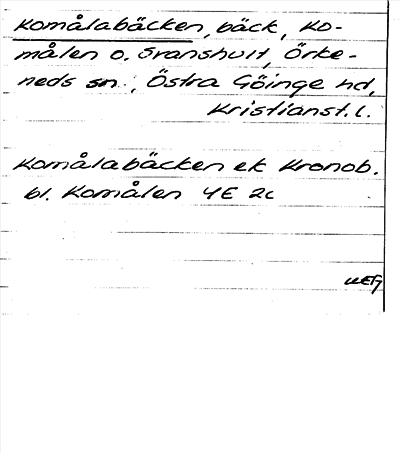 Komålabäcken, bäck, Ko-
målen o. Svanshult, Örke-
neds sn., Östra Göinge hd,
Kristianst. l.
Komålabäcken ek Kronob.
bl. Komålen 4E 2c